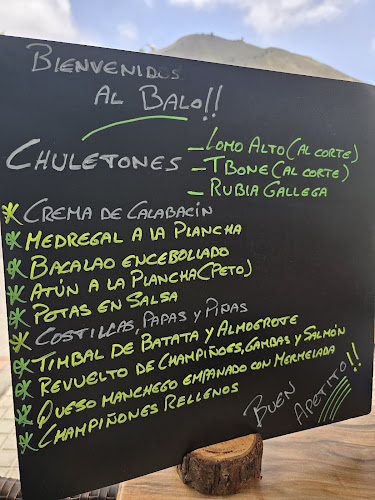 BIENVENIDOS
AL BALO!!
CHULETONES - LOMO ALTO (AL CORTE)
- TBONE (AL CORTE)
- RUBIA GALLEGA
* CREMA DE CALABACÍN
* MEDREGAL A LA PLANCHA
* BACALAO ENCEBOLLADO
* ATÚN A LA PLANCHA (PETO)
* POTAS EN SALSA
* COSTILLAS, PAPAS Y PIÑAS
* TIMBAL DE BATATA Y ALMOGROTE
* REVUELTO DE CHAMPIÑOES, GAMBAS Y SALMÓN
* QUESO MANCHEGO EMPANADO CON MERMELADA
* CHAMPIÑONES RELLENOS
BUEN
APETITO!!